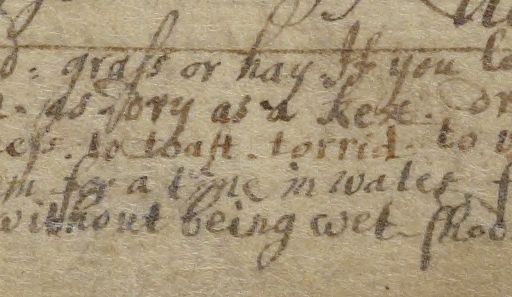 grass or hay If you
as dry as a kex. or
to toast. torrid. to
for a time in water
without being wet-shod